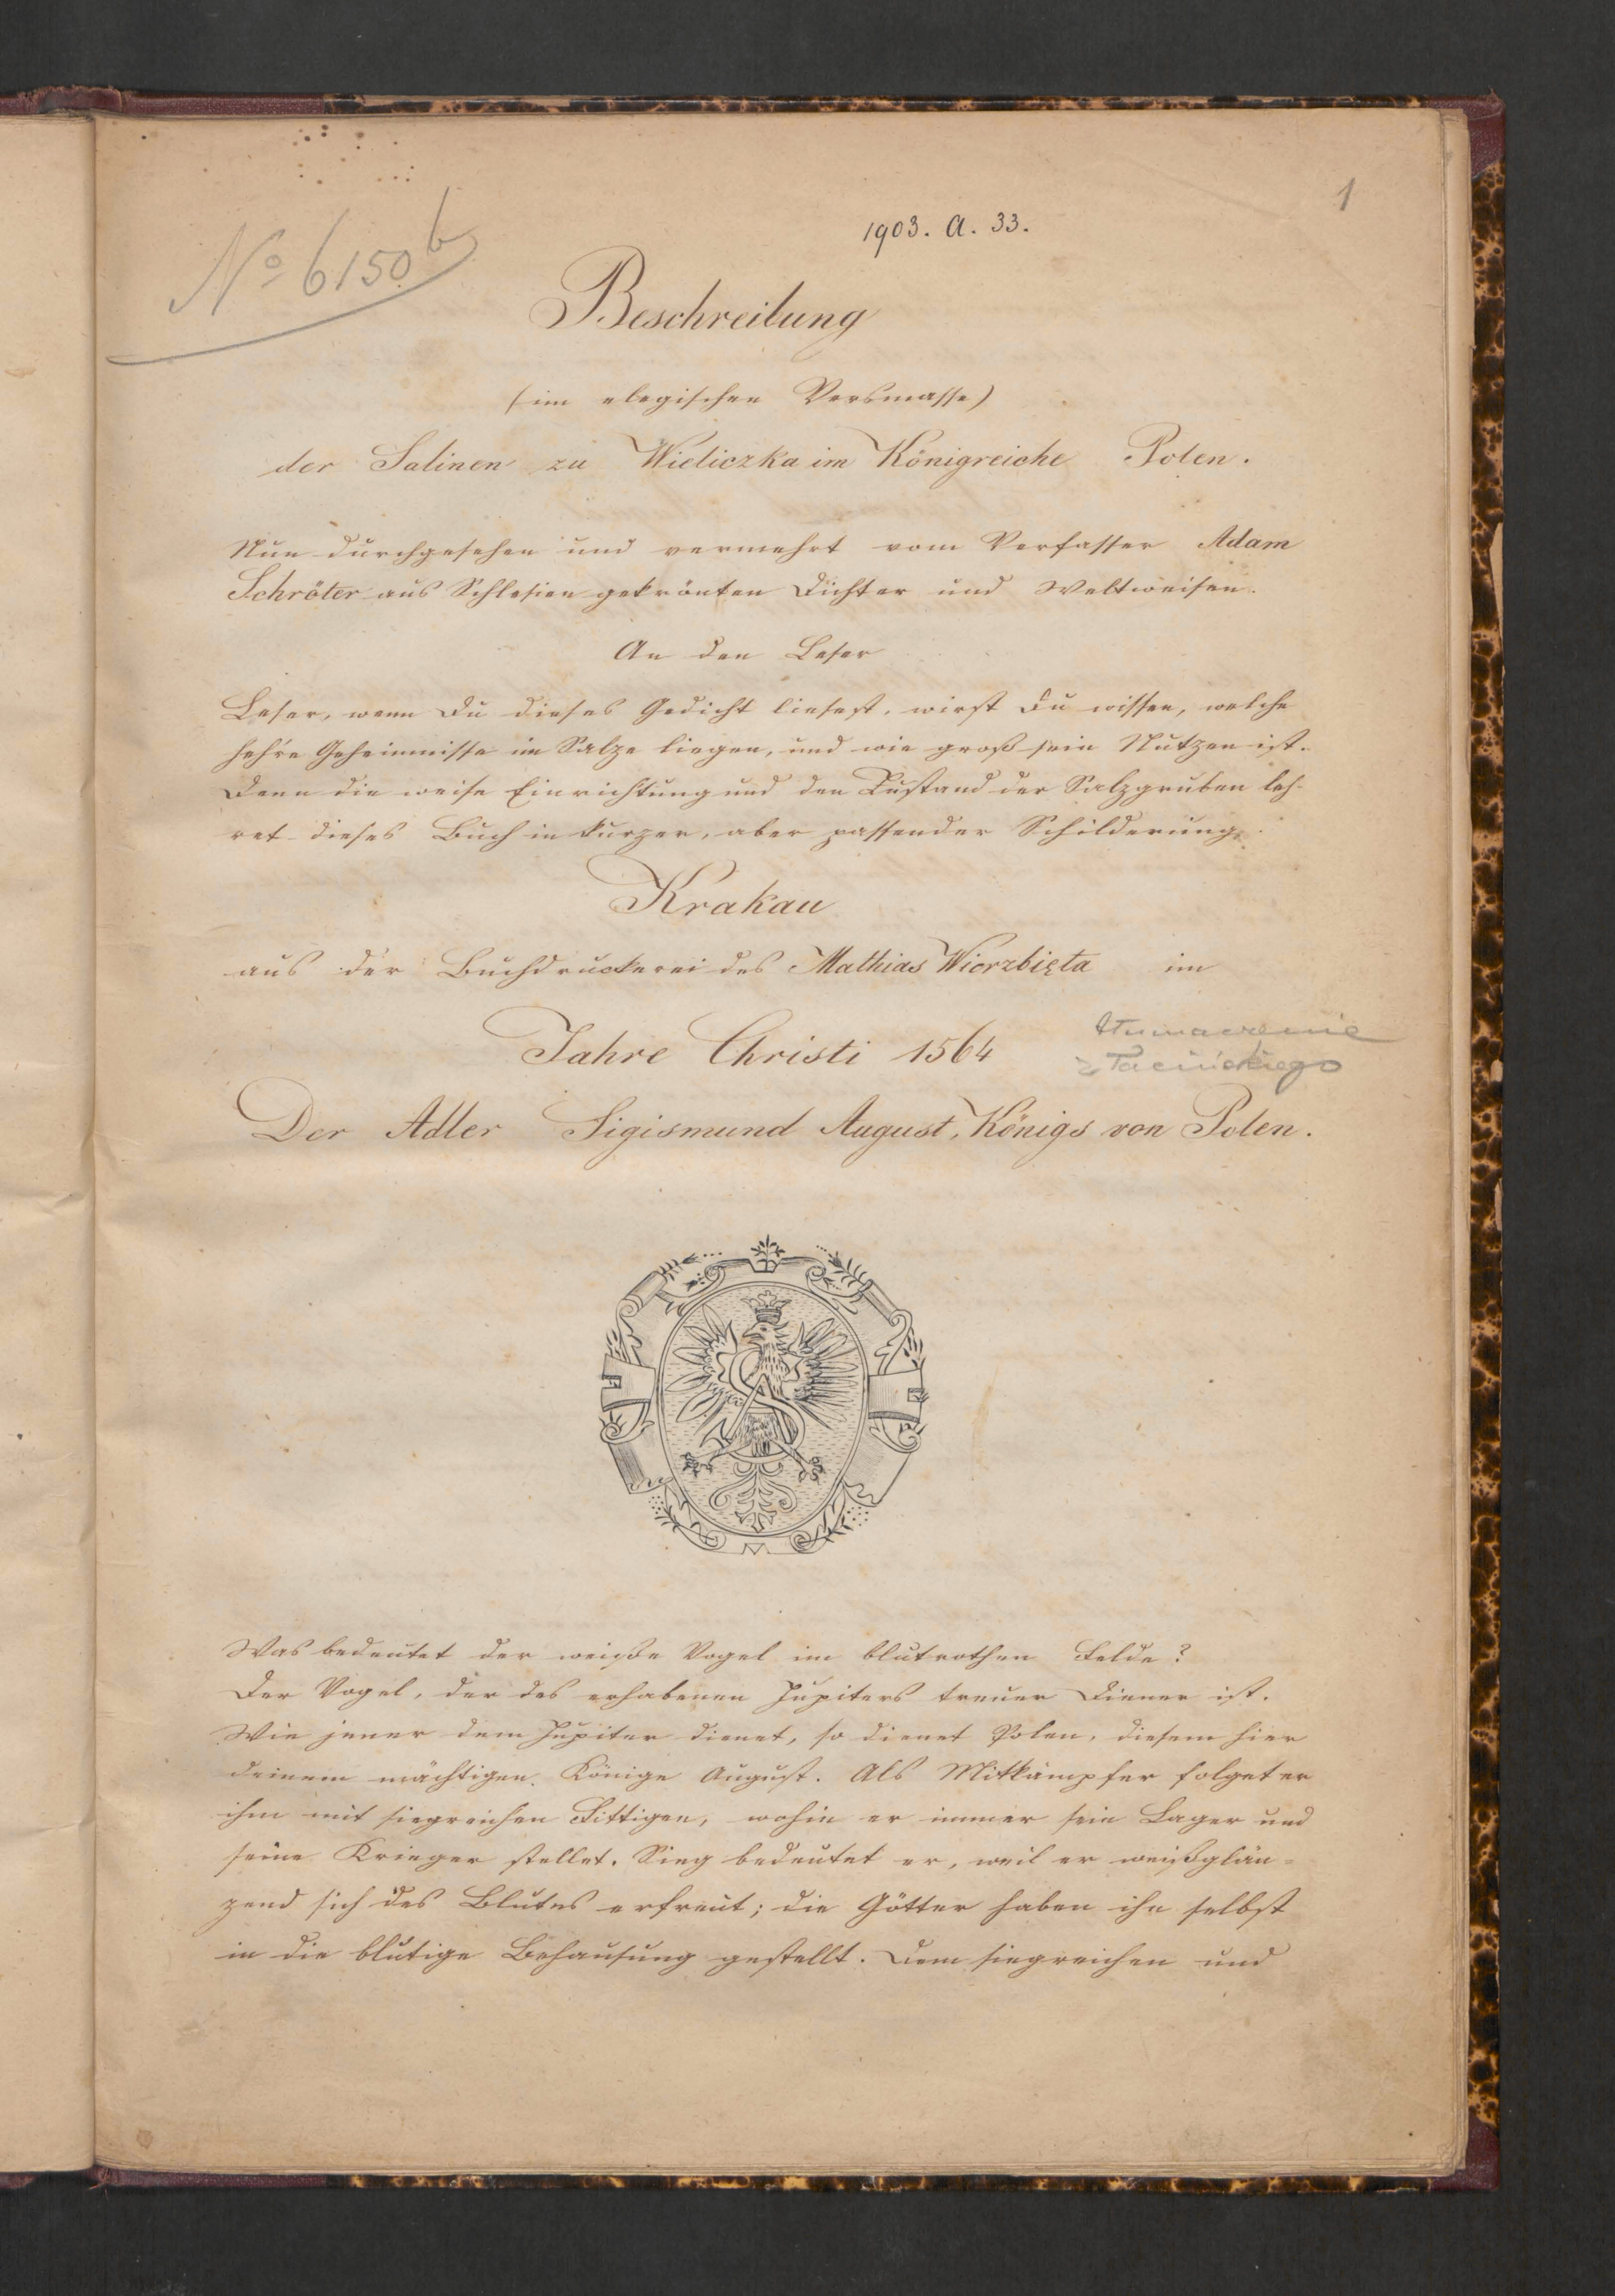 1
1903. A. 33.
No 6150 b
Beschreibung
(im elegischen Versmasse)
der Salinen zu Wieliczka im Königreiche Polen.
Nun durchgesehen und vermehrt vom Verfasser Adam
Schröter aus Schlesien gekrönten Dichter und Weltweisen.
An den Leser
Leser, wenn Du dieses Gedicht liesest, wirst Du wissen, welche
hehre Geheimnisse im Salze liegen, und wie groß sein Nutzen ist.
Denn die weise Einrichtung und den Zustand der Salzgruben leh-
ret dieses Buch in kurzer, aber passender Schilderung.
Krakau
aus der Buchdruckerei des Mathias Wierzbięta im
Jahre Christi 1564
tłumaczenie
z łacińskiego
Der Adler Sigismund August, Königs von Polen.
Was bedeutet der weiße Vogel im blutrothen Felde?
Der Vogel, der des erhabenen Jupiters treuer Diener ist.
Wie jener dem Jupiter dienet, so dienet Polen, diesem hier
deinem mächtigen Könige August. Als Mitkämpfer folget er
ihm mit siegreichen Fittigen, wohin er immer sein Lager und
seine Krieger stellet. Sieg bedeutet er, weil er weißglän=
zend sich des Blutes erfreut; die Götter haben ihn selbst
in die blutige Behausung gestellt. Dem siegreichen und